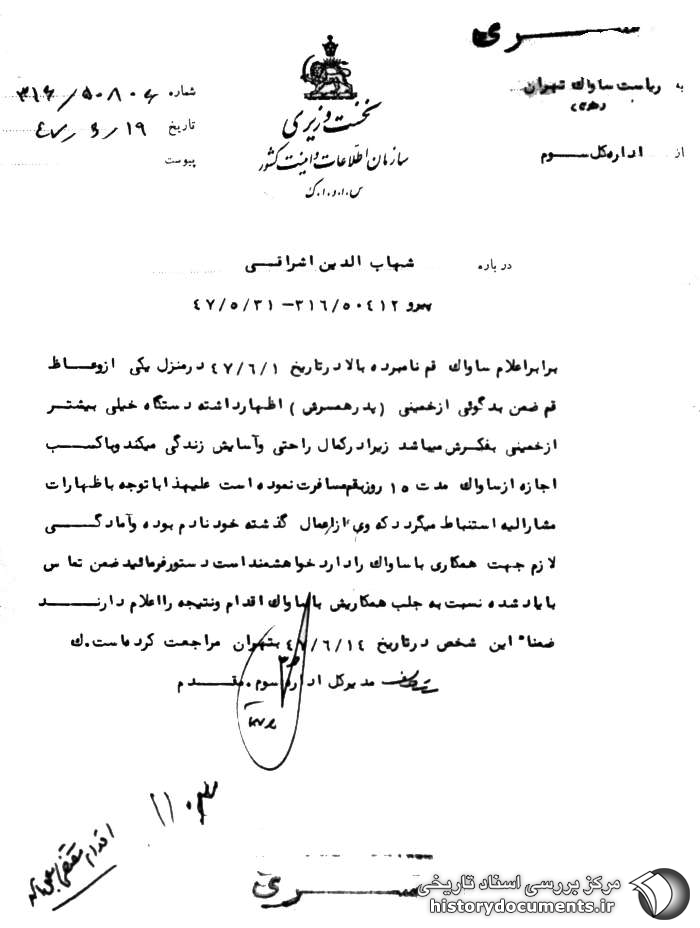 سری
به ریاست ساواک تهران
از اداره کل سوم
نخست وزیری
سازمان اطلاعات و امنیت کشور
س.ا.و.ا.ک
شماره ۳۱۶/۵۰۸۰۶
تاریخ ۴۷/۶/۱۹
پیوست
درباره شهاب الدین اشراقی
پیرو ۳۱۶/۵۰۴۱۲ - ۴۷/۵/۳۱
برابر اعلام ساواک قم نامبرده بالا در تاریخ ۴۷/۶/۱ در منزل یکی از وعاظ
قم ضمن بدگوئی از خمینی (پدر همسرش) اظهار داشته دستگاه خیلی بیشتر
از خمینی بفکرش میباشد زیرا در کمال راحتی و آسایش زندگی میکند و با کسب
اجازه از ساواک مدت ۱۵ روز بقم مسافرت نموده است علیهذا با توجه باظهارات
مشارالیه استنباط میگردد که وی از اعمال گذشته خود نادم بوده و آمادگی
لازم جهت همکاری با ساواک را دارد خواهشمند است دستور فرمائید ضمن تماس
با یاد شده نسبت به جلب همکاریش با ساواک اقدام و نتیجه را اعلام دارند
ضمنا" این شخص در تاریخ ۴۷/۶/۱۴ بتهران مراجعت کرده است. ک
مدیر کل اداره سوم. مقدم
سری
مرکز بررسی اسناد تاریخی
historydocuments.ir